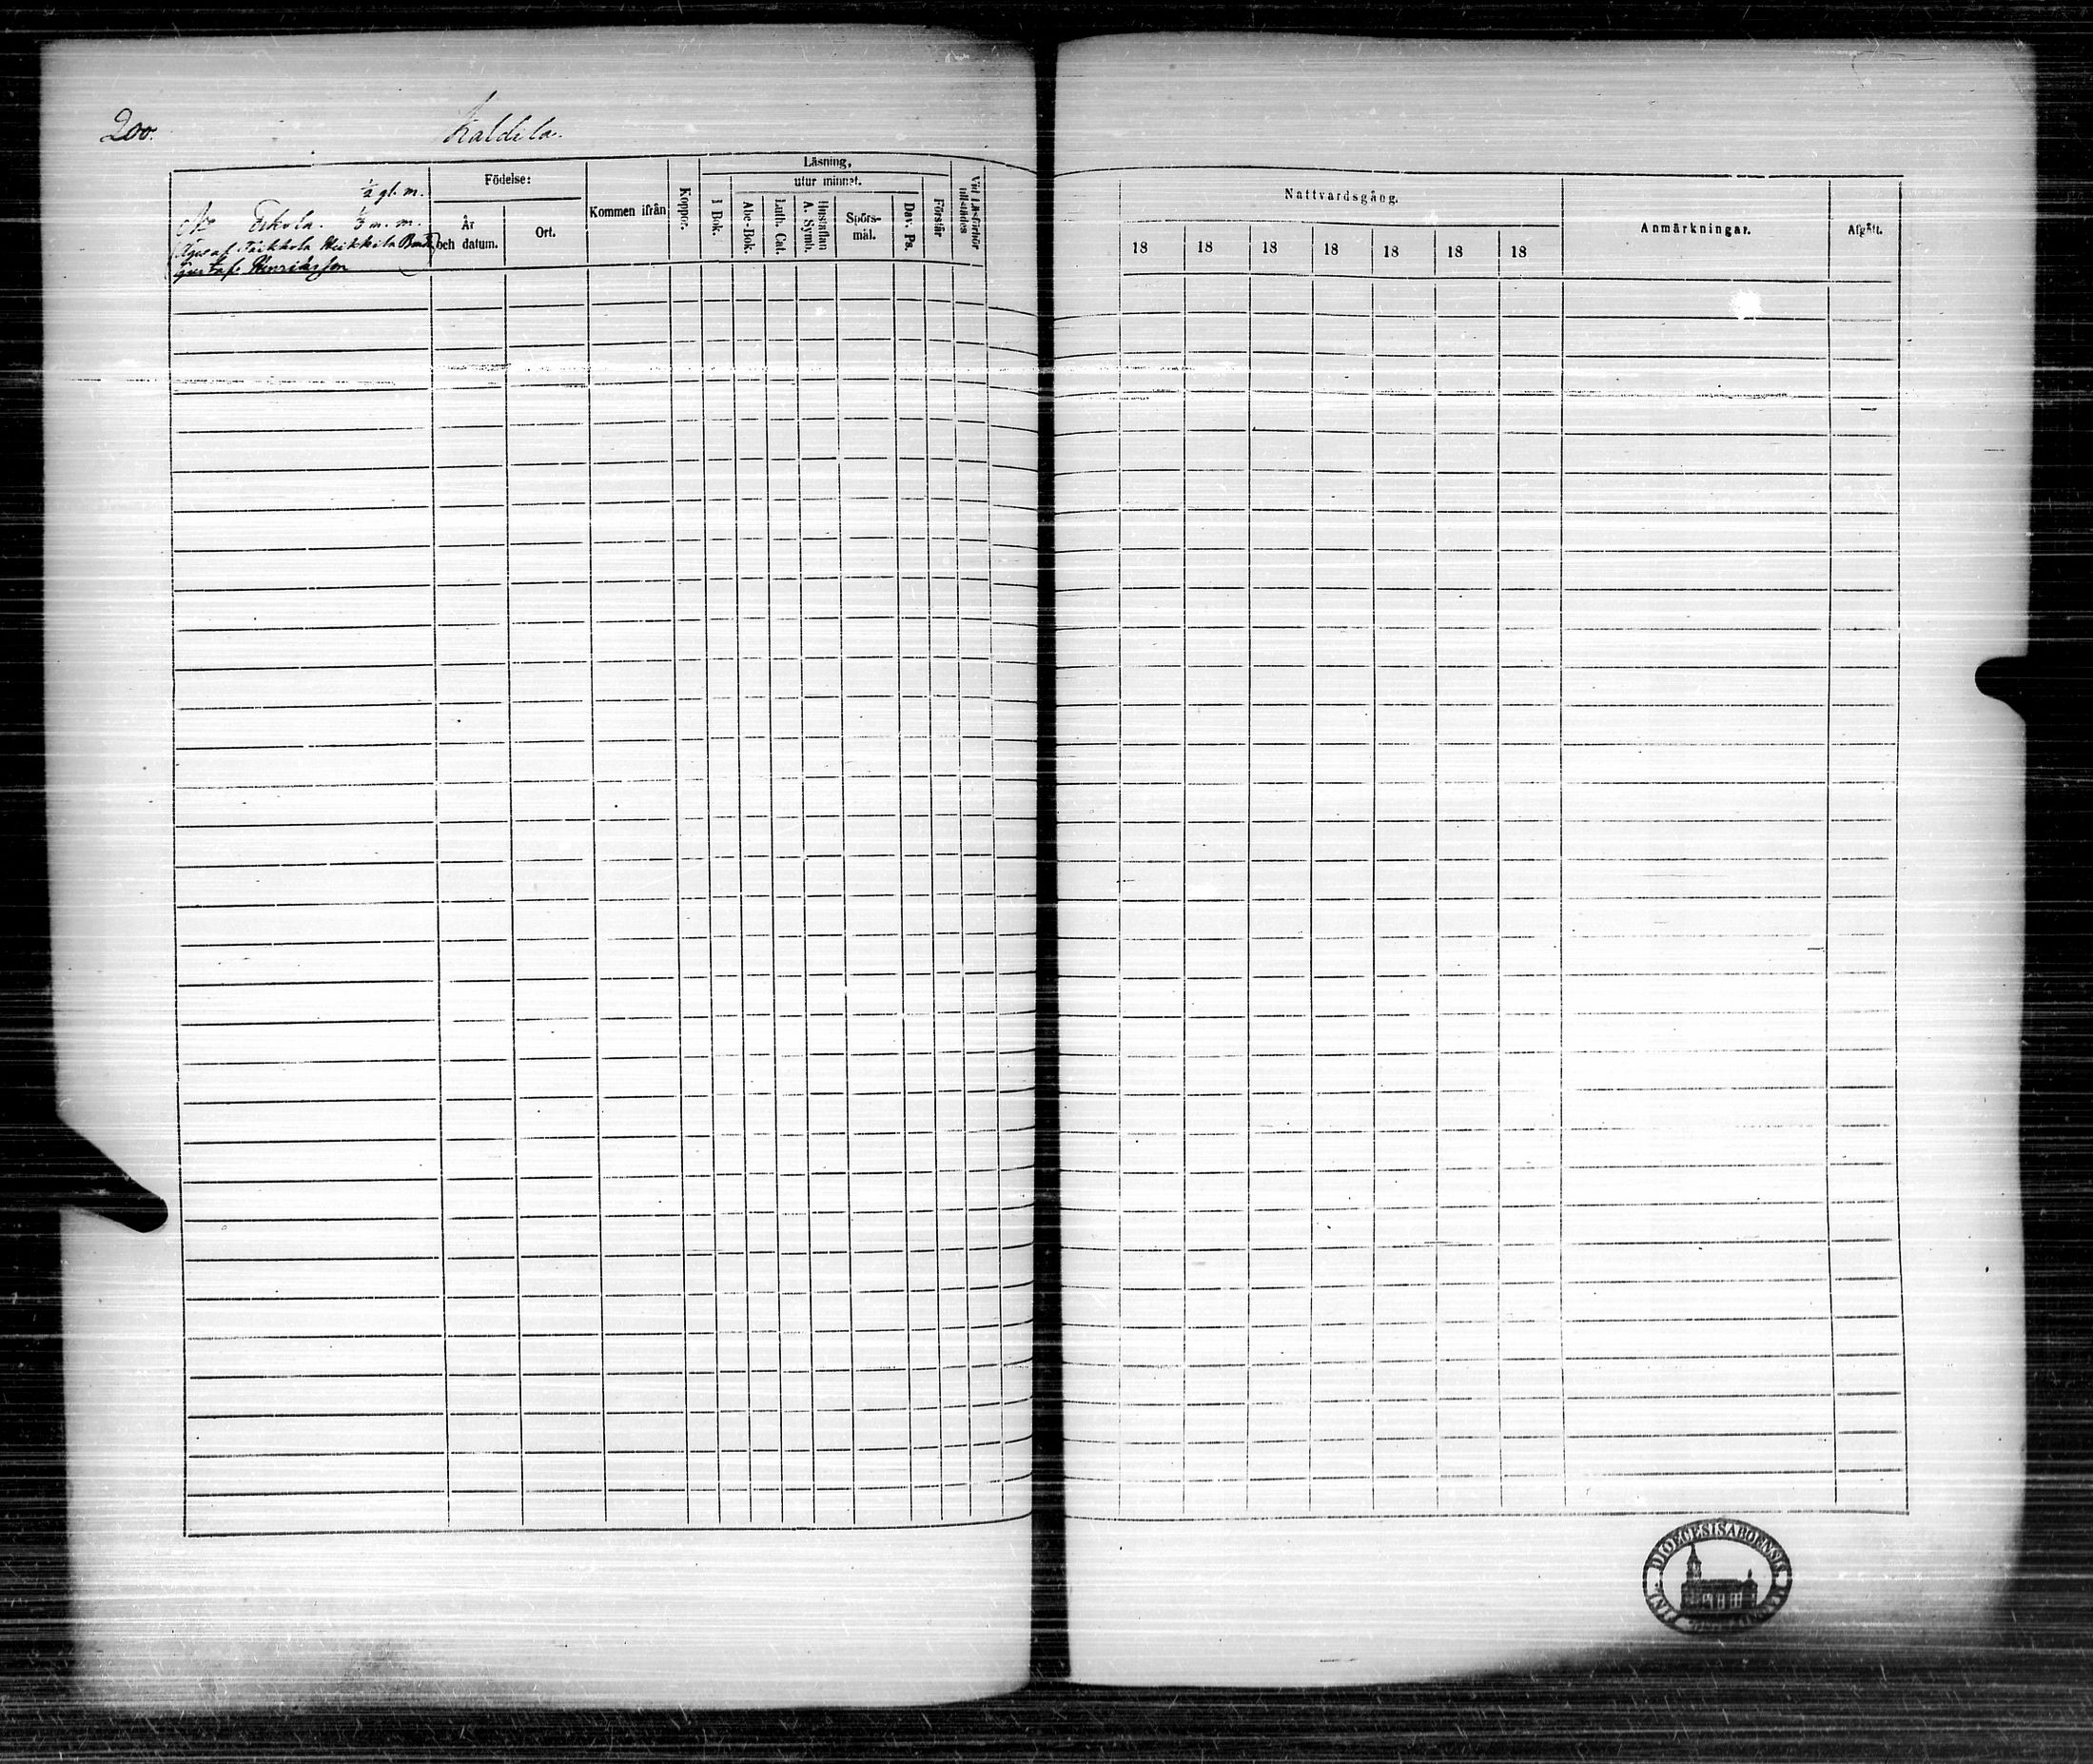 200.
Kaldela.
½ gl. m.
No Eskola. ⅓ m. m.
Heikkilä
Gustaf Henriksson
Födelse:
År och datum.
Ort.
Kommen ifrån
Koppor.
Läsning,
I Bok.
utur minnet.
Abc-Bok.
Luth. Cat.
Hustaflan A. Symb.
Spörs-mål.
Dav. Ps.
Förstår
Vid Läsförhör tillstädes
Nattvardsgång.
18 18 18 18 18 18 18
Anmärkningar.
Afgått.
DIOECESIS ABOENSIS